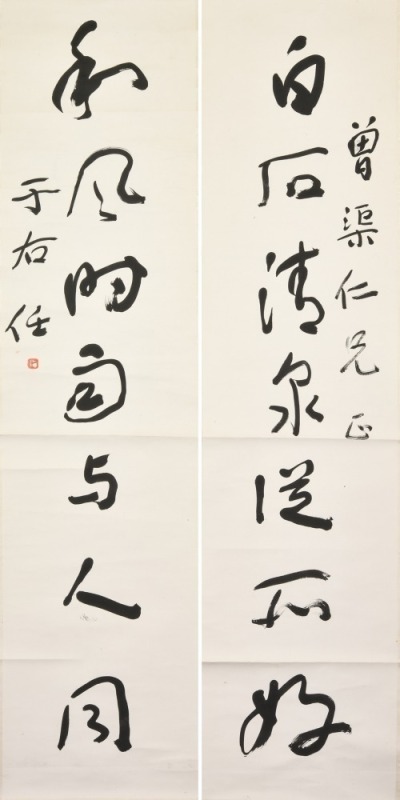 曾渠仁兄正
白石清泉從所好
和風時雨与人同
于右任